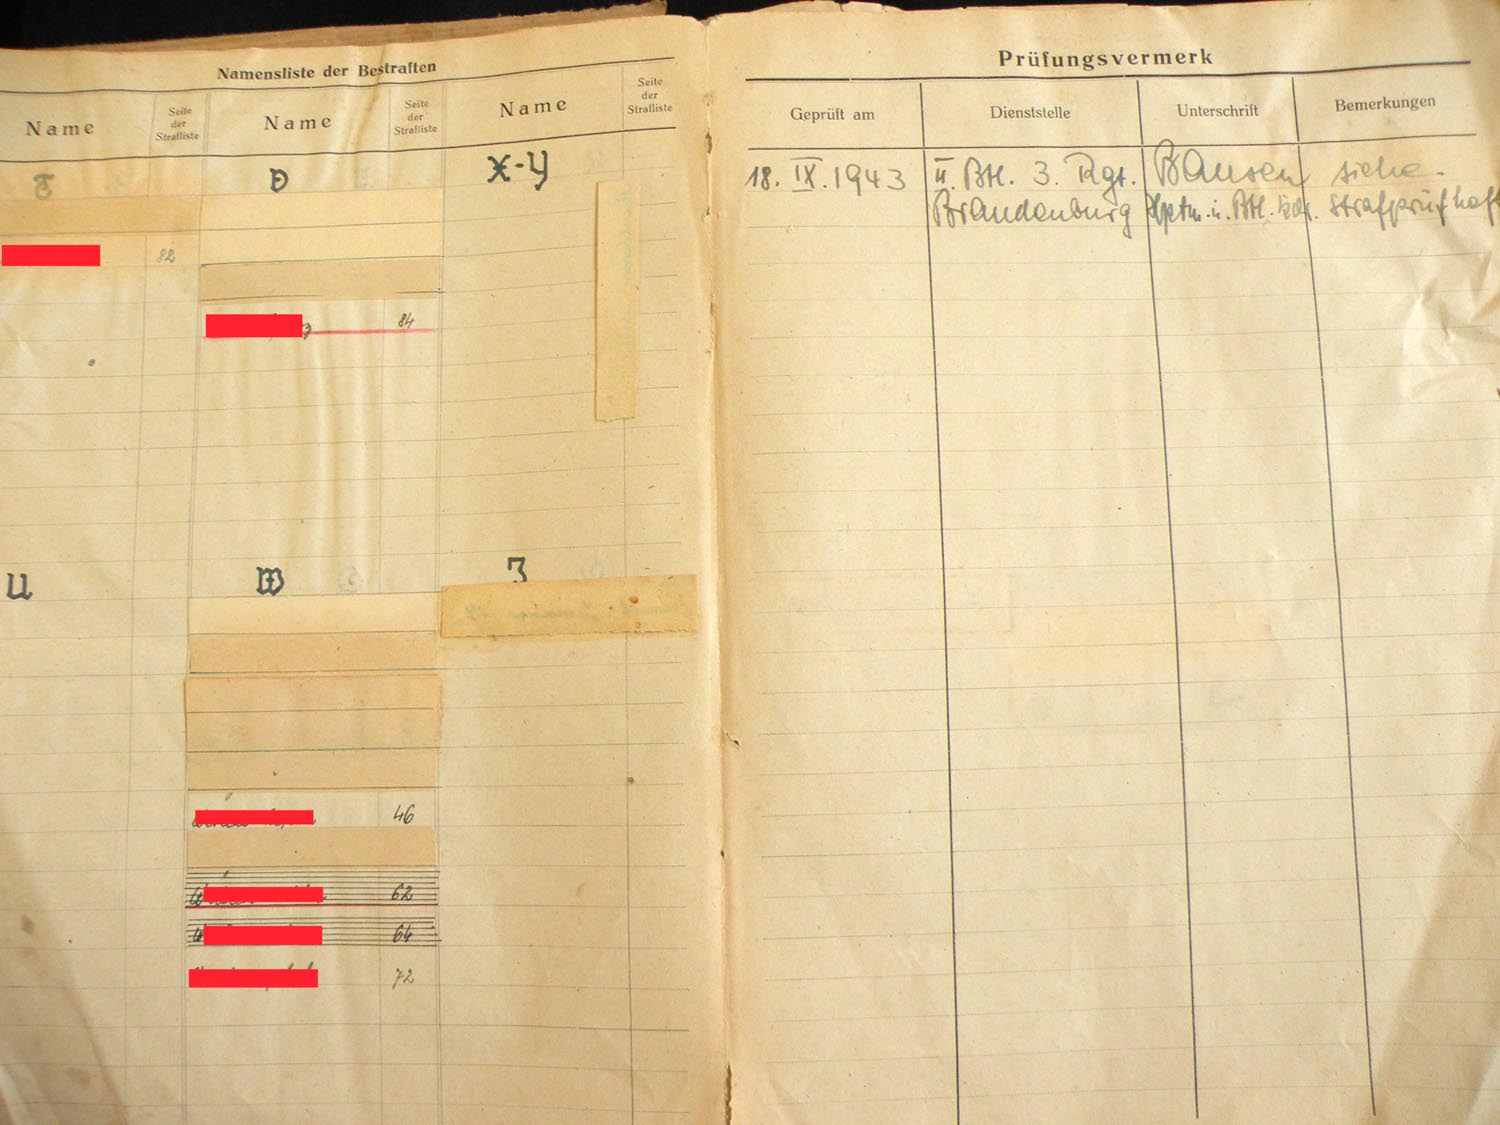 Namensliste der Bestraften
Name
Seite
der
Strafliste
Name
Seite
der
Strafliste
Name
Seite
der
Strafliste
T
V
X-Y
82
84
U
W
Z
46
62
64
72
Prüfungsvermerk
Geprüft am
Dienststelle
Unterschrift
Bemerkungen
18. IX. 1943
II. Btl. 3. Rgt.
siehe
Brandenburg
Hptm. u. Btl. Kdr.